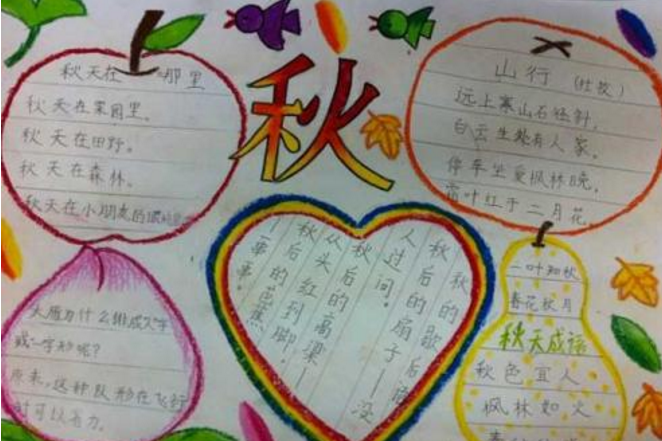 秋天在哪里
秋天在菓园里。
秋天在田野。
秋天在森林。
秋天在小朋友的
秋
山行（杜牧）
远上寒山石径斜，
白云生处有人家。
停车坐爱枫林晚，
霜叶红于二月花。
大雁为什么排成人字
或一字形呢？
原来，这种队形在飞行
时可以省力。
秋的歇后语
秋后的扇子——没
人过问。
秋后的高粱——
从头红到脚。
秋后的芭蕉——
一串串。
一叶知秋
春花秋月
秋天成语
秋色宜人
枫林如火